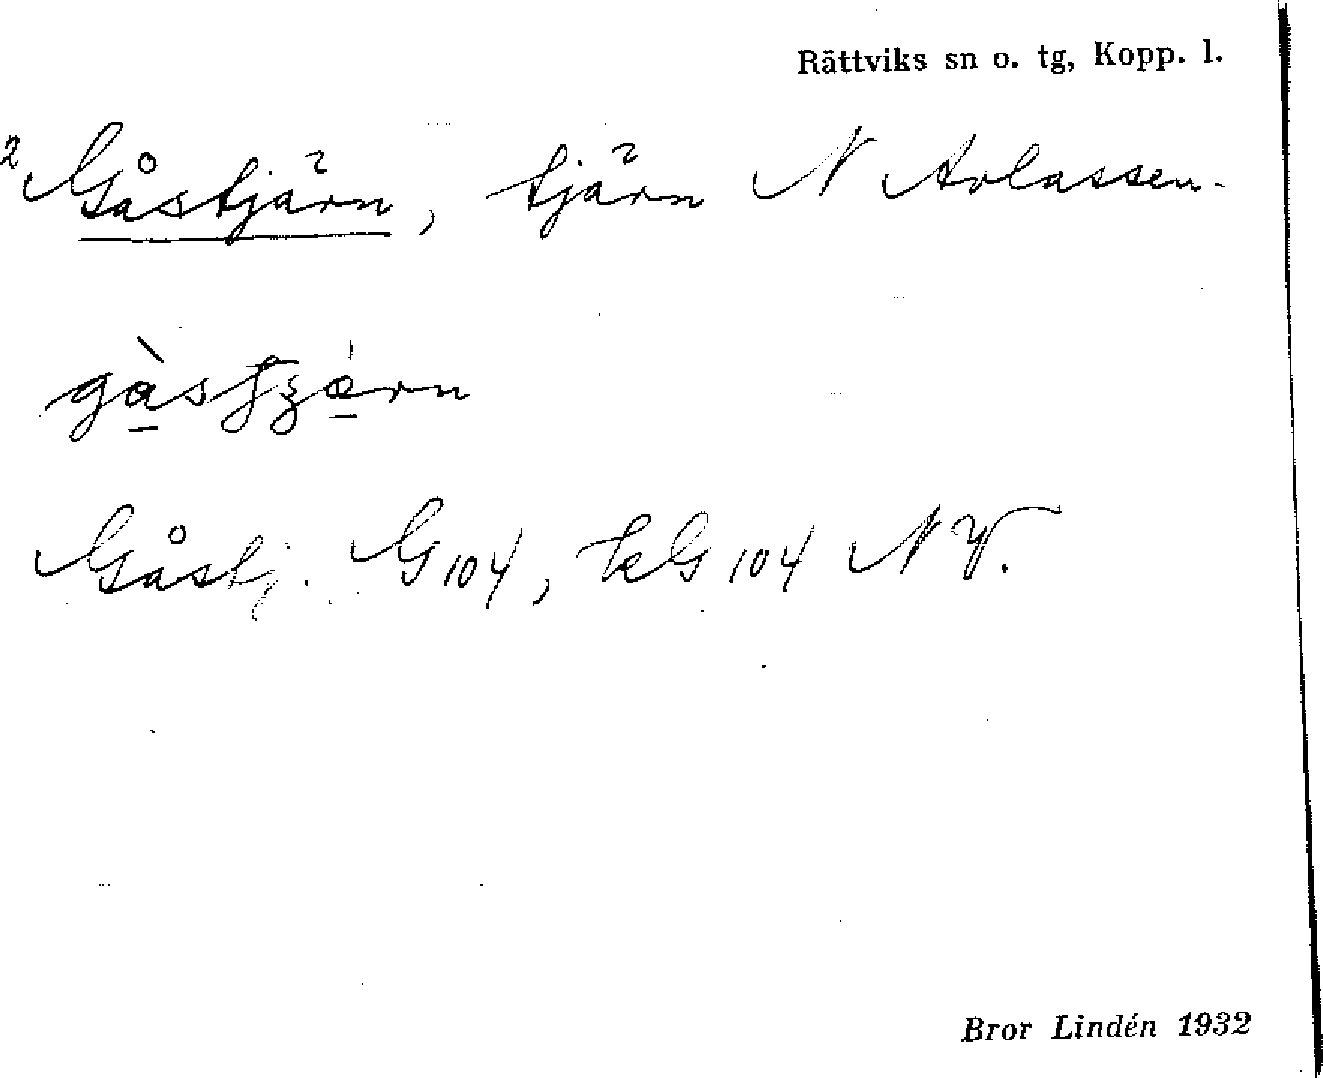 Rättviks sn o. tg, Kopp. l.
2 Gåstjärn, tjärn N Arlassen.
Gåstj. G 104, kG 104 NV.
Bror Lindén 1932